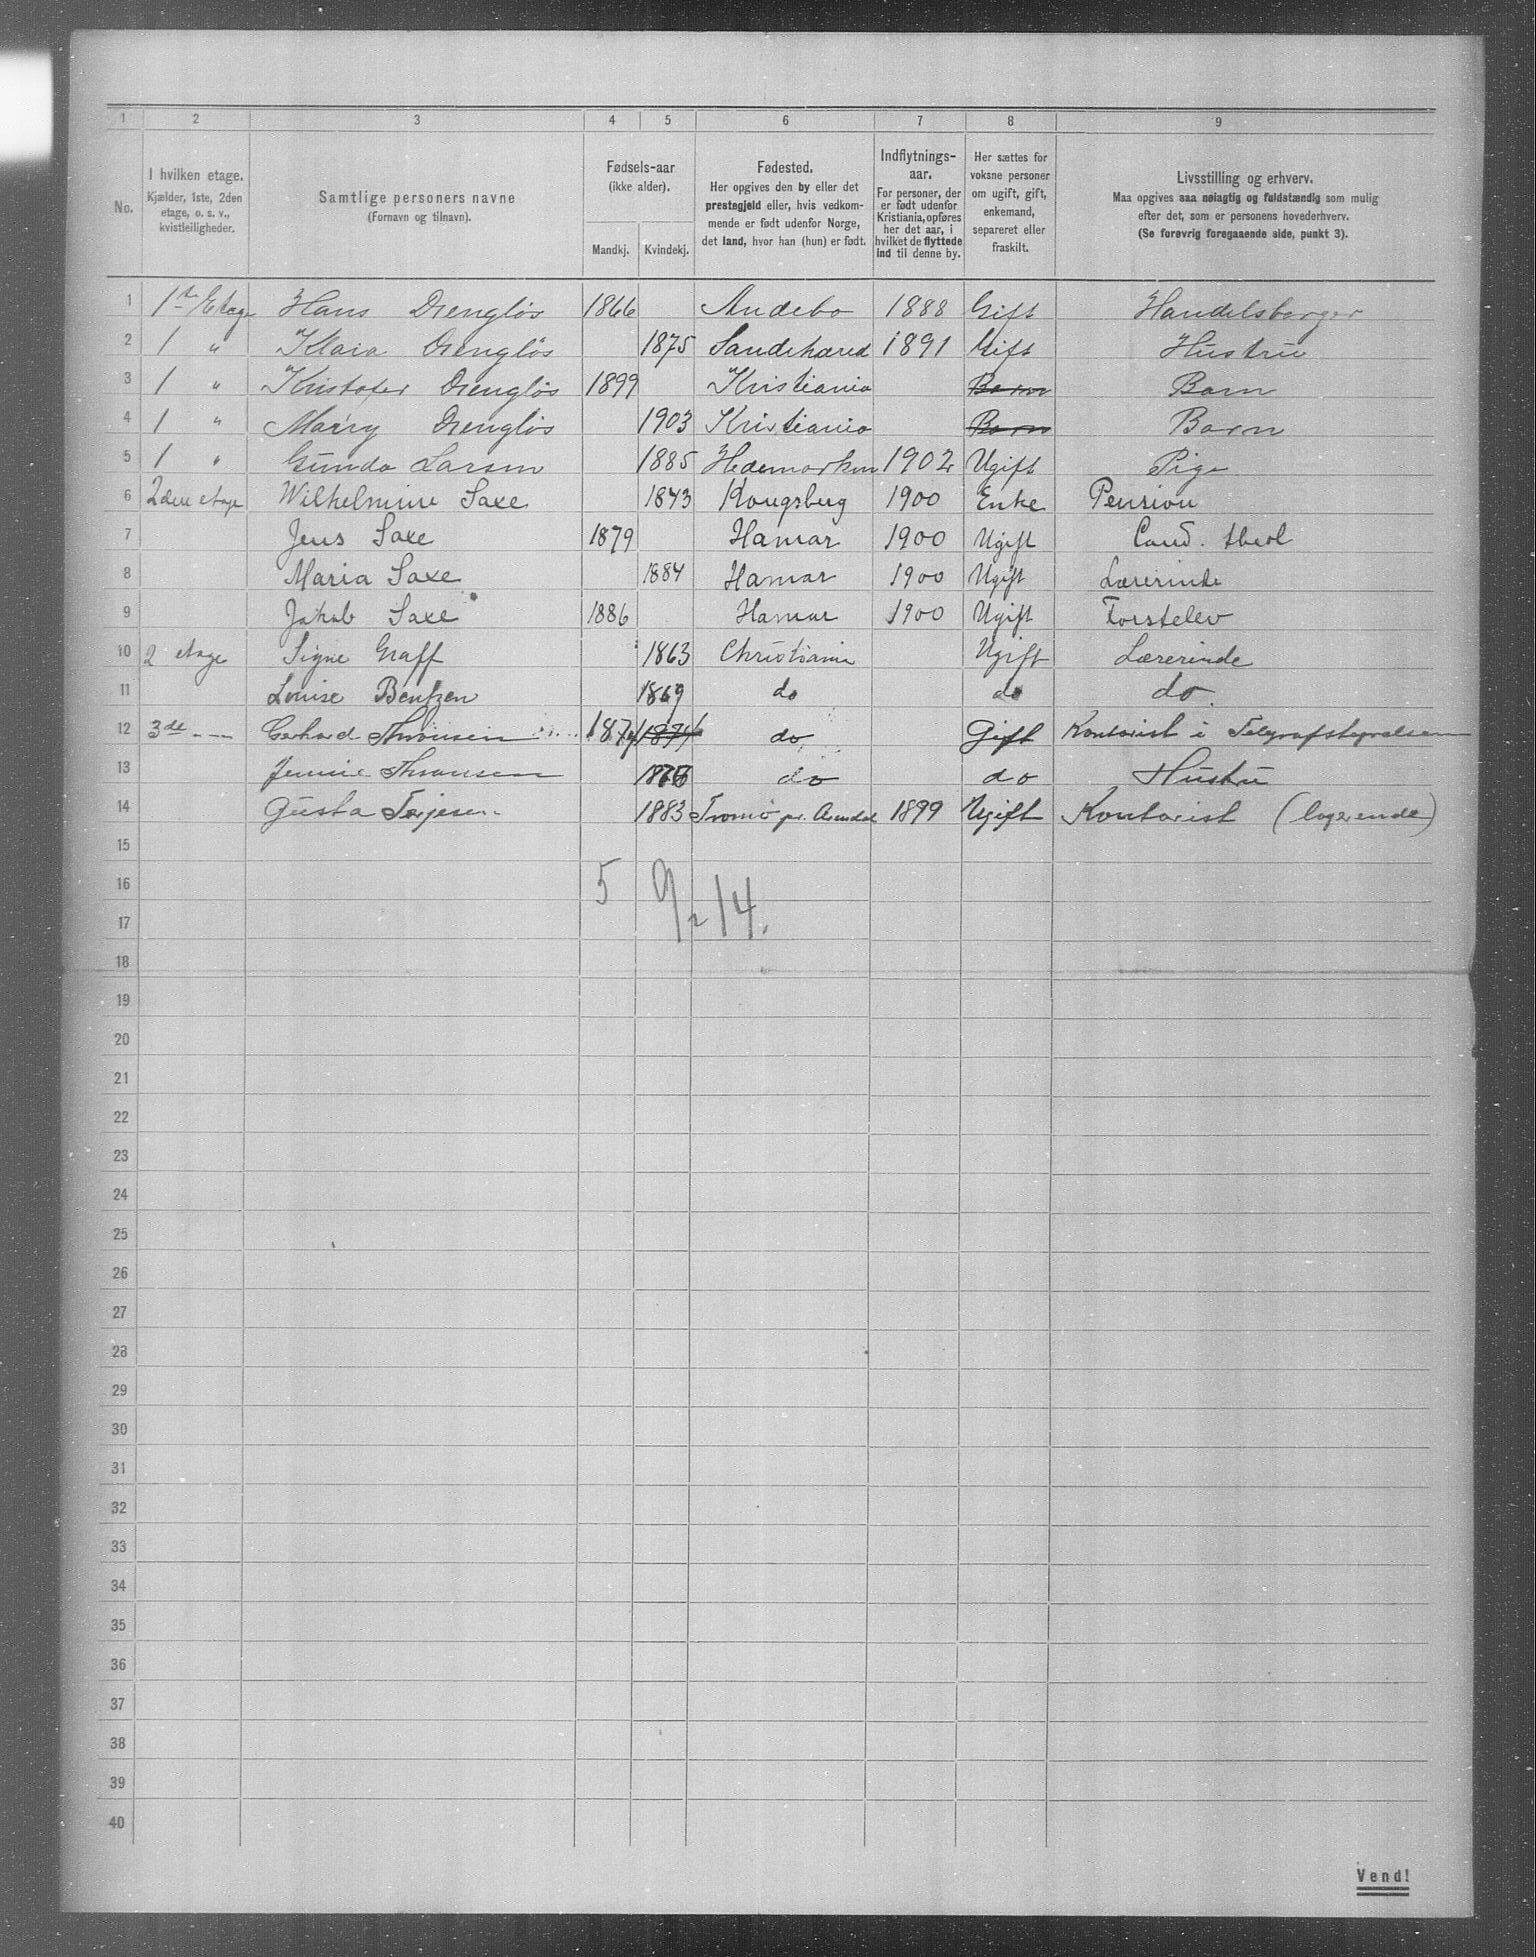 1 2 3 4 5 6 7 8 9
No.
I hvilken etage.
Kjælder, 1ste, 2den
etage, o. s. v.,
kvistleiligheder.
Samtlige personers navne
(Fornavn og tilnavn).
Fødsels-aar
(ikke alder).
Mandkj. Kvindekj.
Fødested.
Her opgives den by eller det
prestegjeld eller, hvis vedkom-
mende er født udenfor Norge,
det land, hvor han (hun) er født.
Indflytnings-
aar.
For personer, der
er født udenfor
Kristiania, opføres
her det aar, i
hvilket de flyttede
ind til denne by.
Her sættes for
voksne personer
om ugift, gift,
enkemand,
separeret eller
fraskilt.
Livsstilling og erhverv.
Maa opgives saa nøiagtig og fuldstændig som mulig
efter det, som er personens hovederhverv.
(Se forøvrig foregaaende side, punkt 3).
1 1ste Etage Hans Drengløs 1866 Andebo 1888 Gift Handelsborger
2 1 " Klara Drengløs 1875 Sandehered 1891 Gift Hustru
3 1 " Kristofer Drengløs 1899 Kristiania Barn Barn
4 1 " Marry Drengløs 1903 Kristiania Barn Barn
5 1 " Gunda Larsen 1885 Hedemarken 1902 Ugift Pige
6 2den etage Wilhelmine Saxe 1843 Kongsberg 1900 Enke Pension
7 Jens Saxe 1879 Hamar 1900 Ugift Cand. theol
8 Maria Saxe 1884 Hamar 1900 Ugift Lærerinde
9 Jakob Saxe 1886 Hamar 1900 Ugift Forstelev
10 2 etage Signe Graff 1863 Christiania Ugift Lærerinde
11 Louise Bentzen 1869 do do do.
12 3de - - - Gerhard Thronsen 1874 1874 do Gift Kontorist i Telegrafstyrelsen
13 Jennie Thronsen do do Hustru
14 Gusta Terjesen 1883 Tromø pr. Arendal 1899 Ugift Kontorist (logerende)
15
16 5 9 = 14.
17
18
19
20
21
22
23
24
25
26
27
28
29
30
31
32
33
34
35
36
37
38
39
40
Vend!